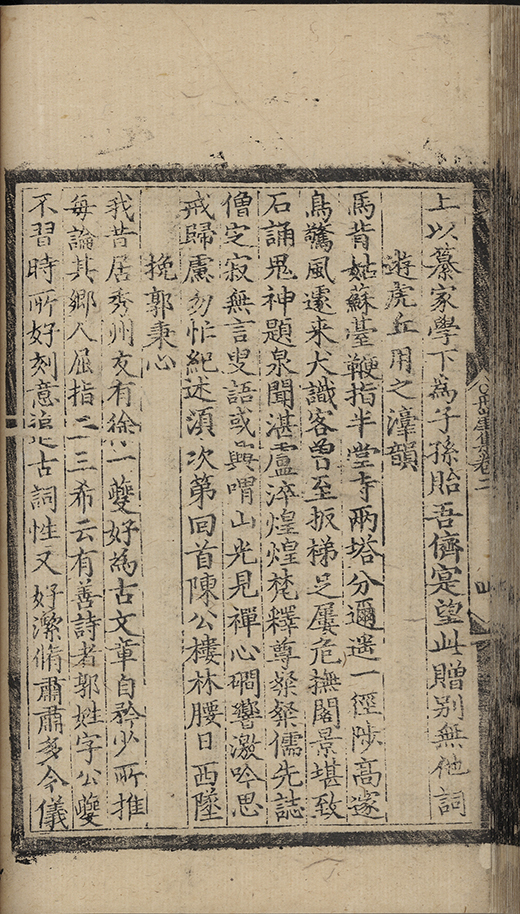 上以纂家學下為子孫貽吾儕寔望此贈別無他詞
遊虎丘用之漳韻
馬背姑蘇臺鞭指半塘寺兩塔分邇遥一徑陟高邃
鳥驚風還来犬識客曽至扳梯足屢危撫閣景堪致
石誦鬼神題泉聞湛盧淬煌煌梵釋尊粲粲儒先誌
僧定寂無言叟語或興喟山光見禪心磵響激吟思
戒歸慮勿忙紀述須次第回首陳公樓林腰日西墜
挽郭秉心
我昔居秀州友有徐一夔好為古文章自矜少所推
每論其鄉人屈指二三希云有善詩者郭姓字公夔
不習時所好刻意追古詞性又好潔脩肅肅多令儀
卷二